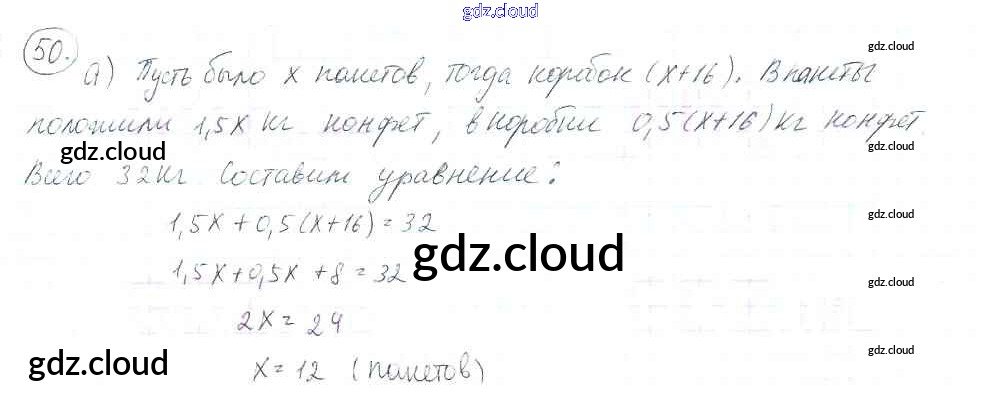 gdz.cloud
50.
а) Пусть было x пакетов, тогда коробок (x+16). В пакеты
gdz.cloud
положили 1,5x кг конфет, в коробки 0,5(x+16) кг конфет.
gdz.cloud
gdz.cloud
Всего 32кг. Составим уравнение:
1,5x + 0,5(x+16) = 32
gdz.cloud
1,5x + 0,5x + 8 = 32
gdz.cloud
gdz.cloud
2x = 24
gdz.cloud
gdz.cloud
x = 12 (пакетов)